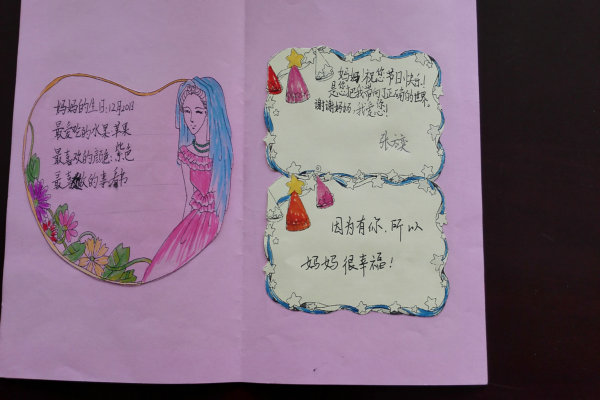 妈妈的生日:12月20日
最爱吃的水果:苹果
最喜欢的颜色:紫色
最喜欢的事:看书
妈妈,祝您节日快乐!
是您把我带向了正确的世界.
谢谢妈妈,我爱您!
因为有你,所以
妈妈很幸福!